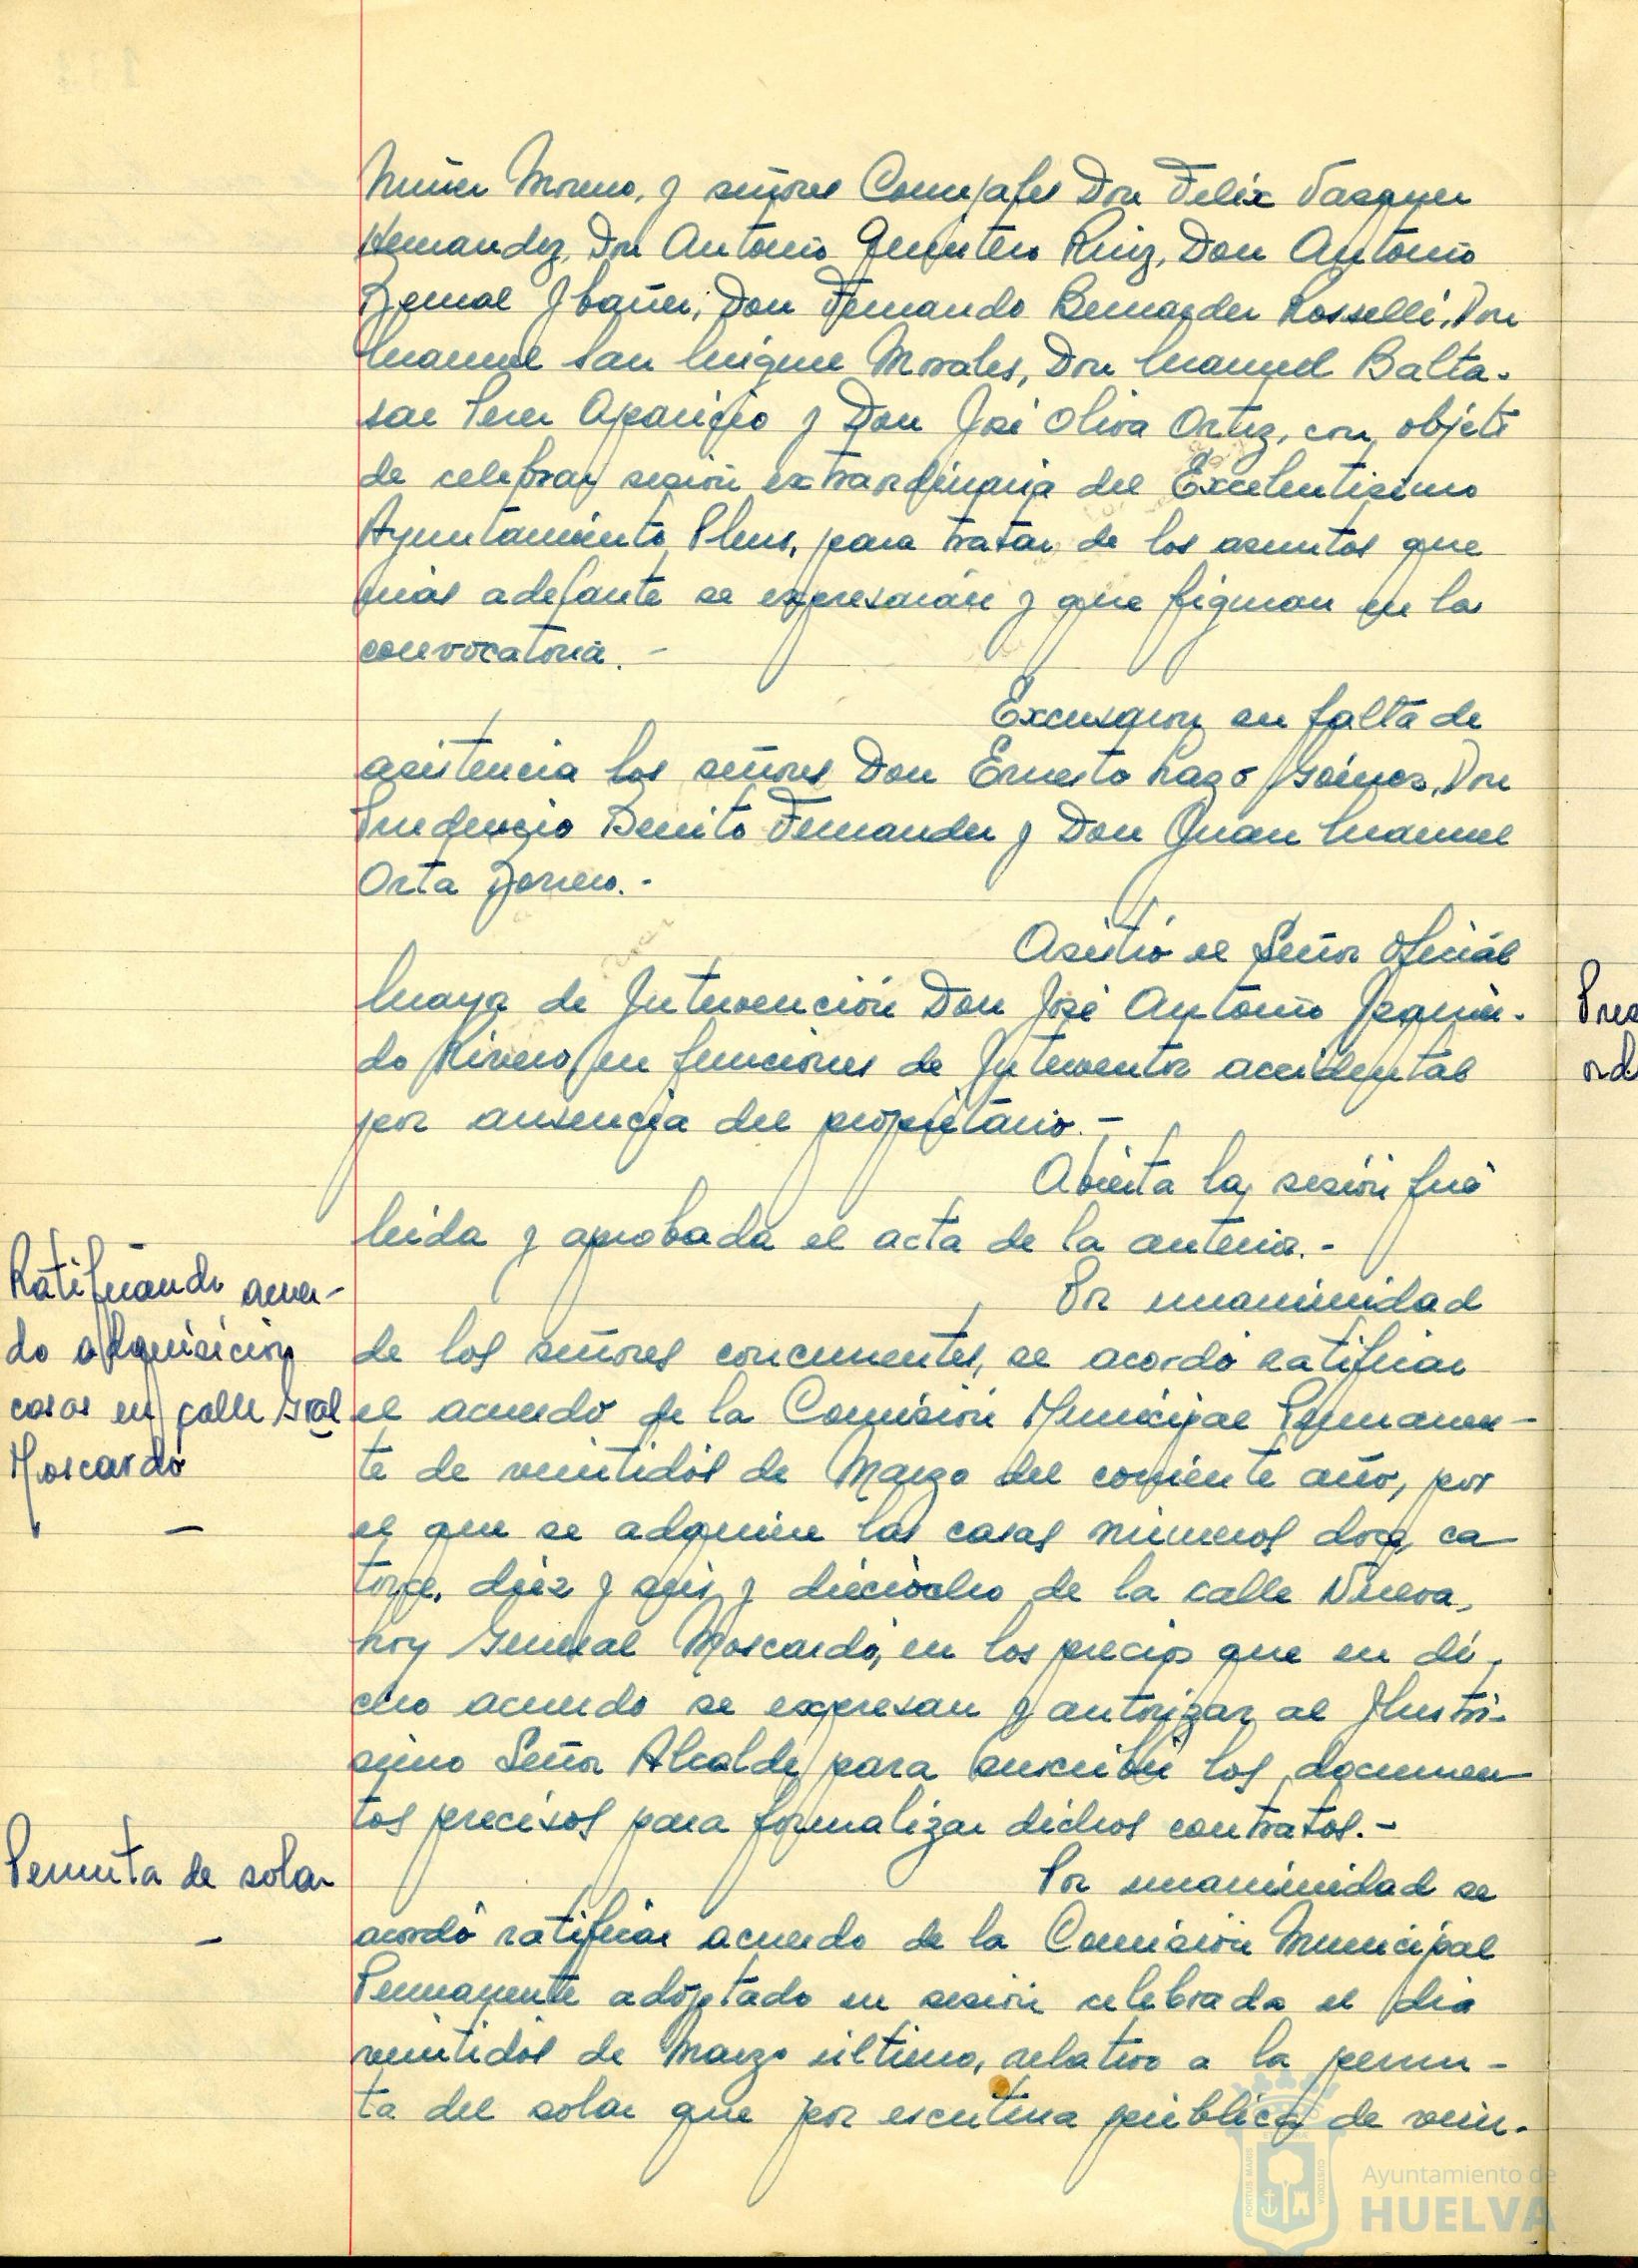 Nuñez Moreno, y señores Concejales Don Felix Vazquez
Hernandez, Don Antonio Quintero Ruiz, Don Antonio
Bernal Ybañez, Don Fernando Bernardez Rosselló, Don
Manuel San Miguel Morales, Don Manuel Balta-
sar Perez Aparicio y Don José Oliva Ortiz, con objeto
de celebrar sesión extraordinaria del Excelentisimo
Ayuntamiento Pleno, para tratar de los asuntos que
más adelante se expresarán y que figuran en la
convocatoria.-
Excusaron su falta de
asistencia los señores Don Ernesto Lazo Gaínos, Don
Prudencio Benito Fernandez y Don Juan Manuel
Orta Borrero.-
Asistió el Señor Oficial
Mayor de Intervención Don José Antonio
do Rivero en funciones de Interventor accidental
por ausencia del propietario.-
Abierta la sesión fué
leida y aprobada el acta de la anterior.-
Ratificando acuer-
do adquisicion
casas en calle Gral
Moscardó
-
Por unanimidad
de los señores concurrentes, se acordó ratificar
el acuerdo de la Comisión Municipal Permanen-
te de veintidós de Marzo del corriente año, por
el que se adquiere las casas números doce, ca-
torce, diez y seis, y dieciocho de la calle Nueva,
hoy General Moscardó, en los precios que en di-
cho acuerdo se expresan y autorizar al Ilustri-
simo Señor Alcalde para suscribir los documen-
tos precisos para formalizar dichos contratos.-
Permuta de solar
-
Por unanimidad se
acordó ratificar acuerdo de la Comisión Municipal
Permanente adoptado en sesión celebrada el dia
veintidós de Marzo último, relativo a la permu-
ta del solar que por escritura pública de vein-
Ayuntamiento de
HUELVA